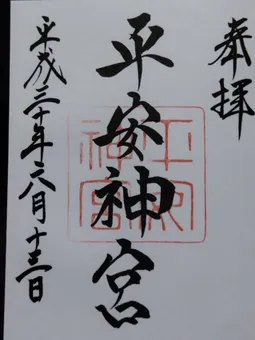 奉拝
平安神宮
平安神宮
平成三十年八月十三日